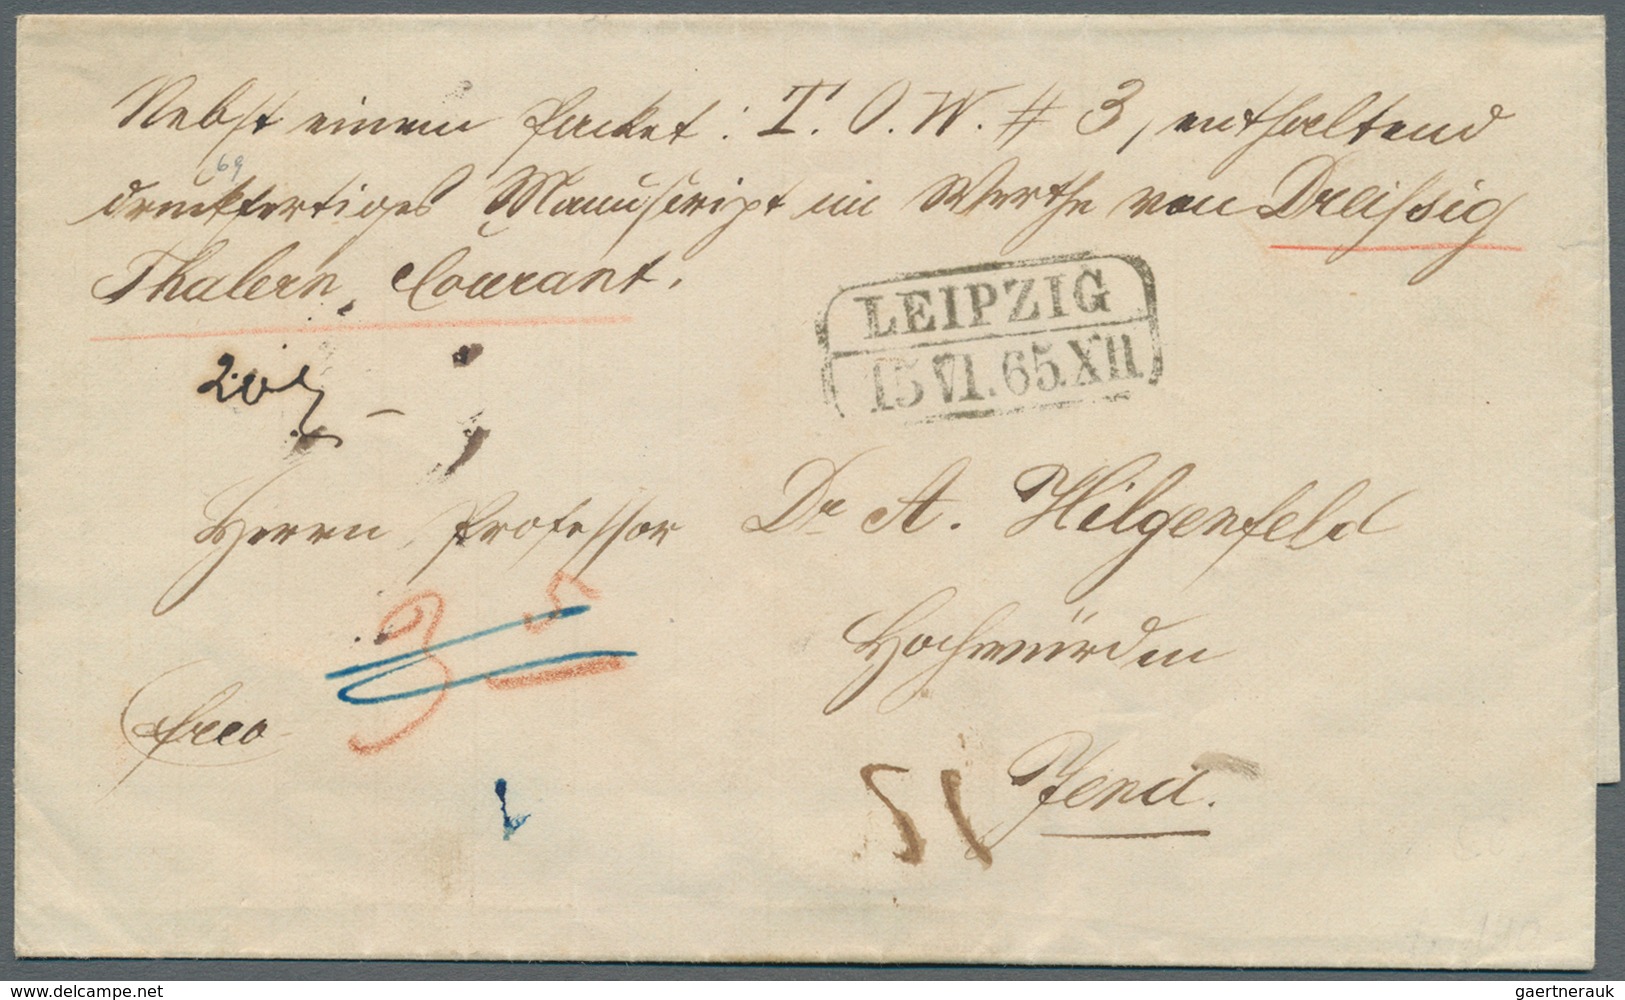 Nebst einem Packet: T. O. W. # 3, enthaltend
69
druckfertiges Manuscript im Werthe von Dreissig
Thalern, Courant.
LEIPZIG
15 VI. 65. XII
Herrn Professor Dr A. Hilgenfeld
3 5
Hochwürden
frco
51
Jena.
www.delcampe.net
gaertnerauk